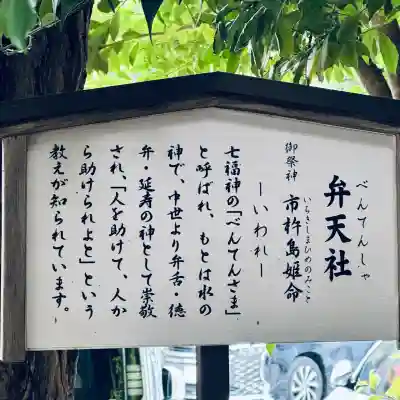 べんてんしゃ
弁天社
御祭神 市杵島姫命
いちきしまひめのみこと
ーいわれー
七福神の「べんてんさま」
と呼ばれ、もとは水の
神で、中世より弁舌・徳
弁・延寿の神として崇敬
され、「人を助けて、人か
ら助けられよと」という
教えが知られています。